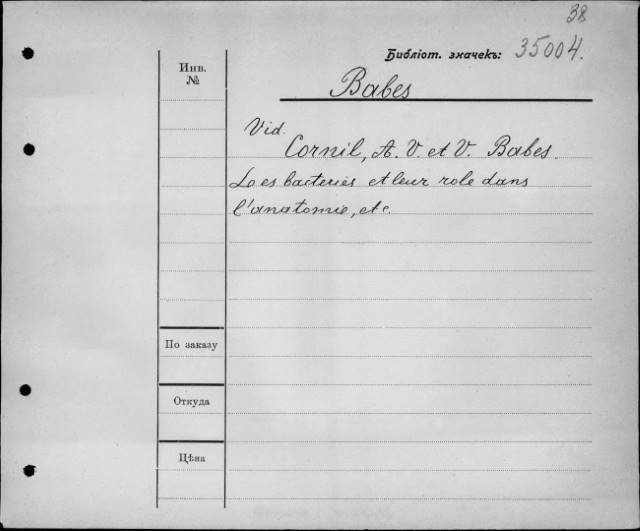 38
Библіот. значекъ: 35004.
Инв.
№
Babes
Vid.
Cornil, A. V. et V. Babes.
Les bacteries et leur role dans
l'anatomie, etc.
По заказу
Откуда
Цѣна